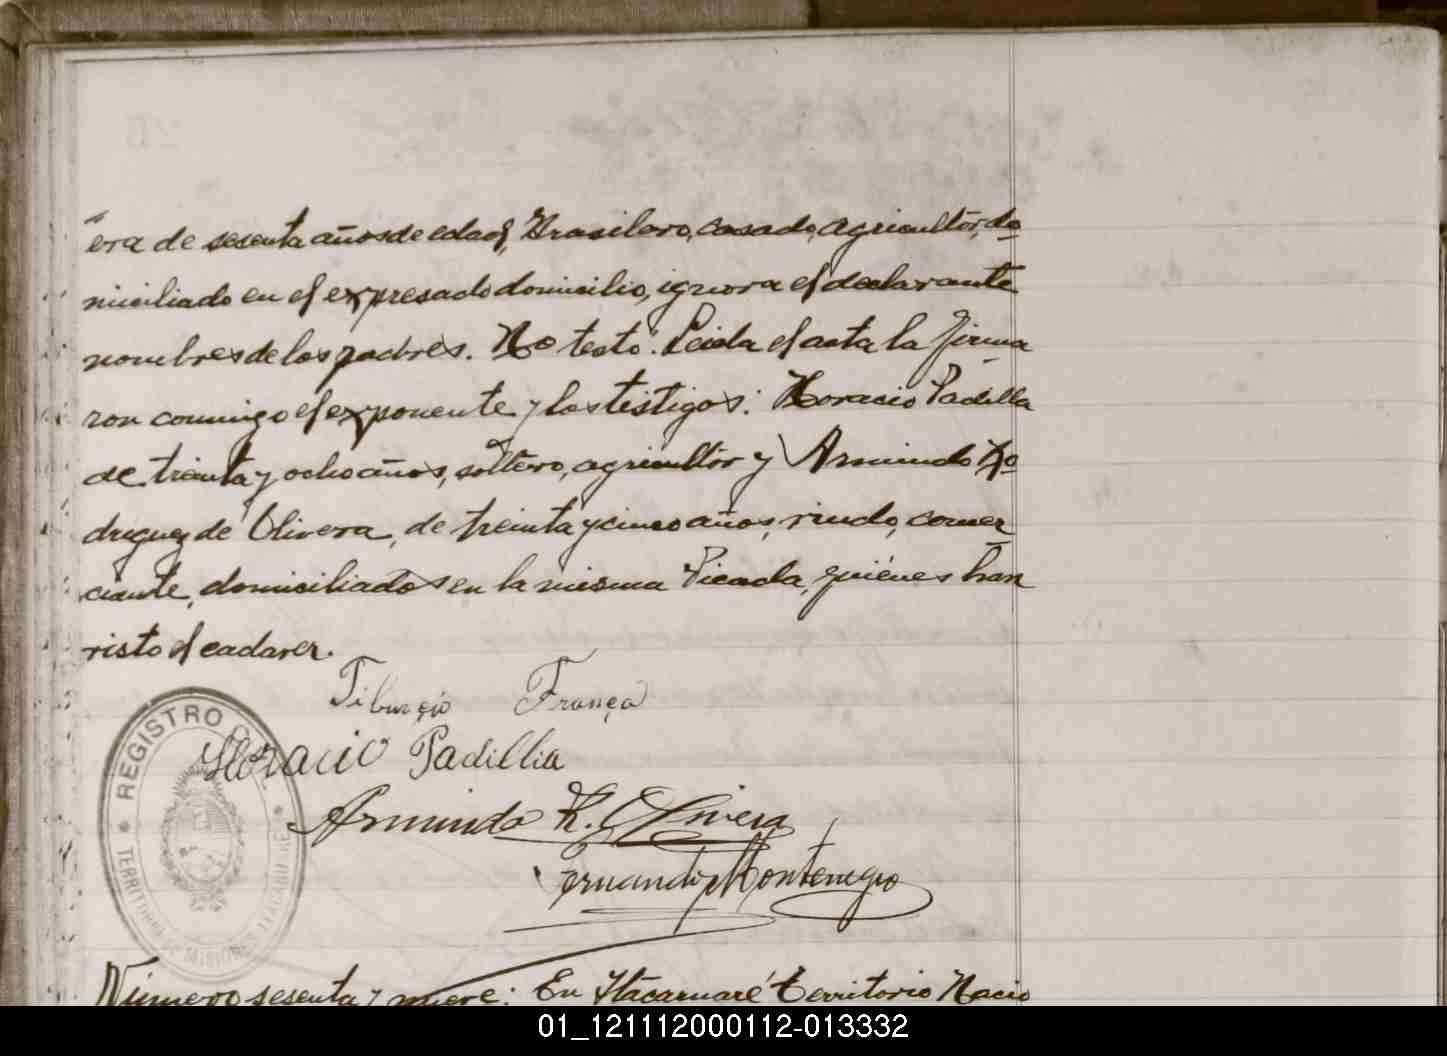 era de sesenta años de edad, Brasilero, casado, agricultor, do
miciliado en el expresado domicilio, ignora el declarante
nombres de los padres. No testó. Leida el acta la firma
ron conmigo el exponente y los testigos: Horacio Padilla
de treinta y ocho años, soltero, agricultor y Armindo Ro
driguez de Olivera, de treinta y cinco años, viudo, comer
ciante, domiciliados en la misma Picada, quiénes han
visto el cadaver.
Tiburçio França
Horacio Padillia
Armindo R. Olivera
Fernando Montenegro
REGISTRO CIVIL
TERRITORIO DE MISIONES ITACARUARÉ
Número sesenta y nueve: En Itacaruaré Territorio Nacio
01_121112000112-013332